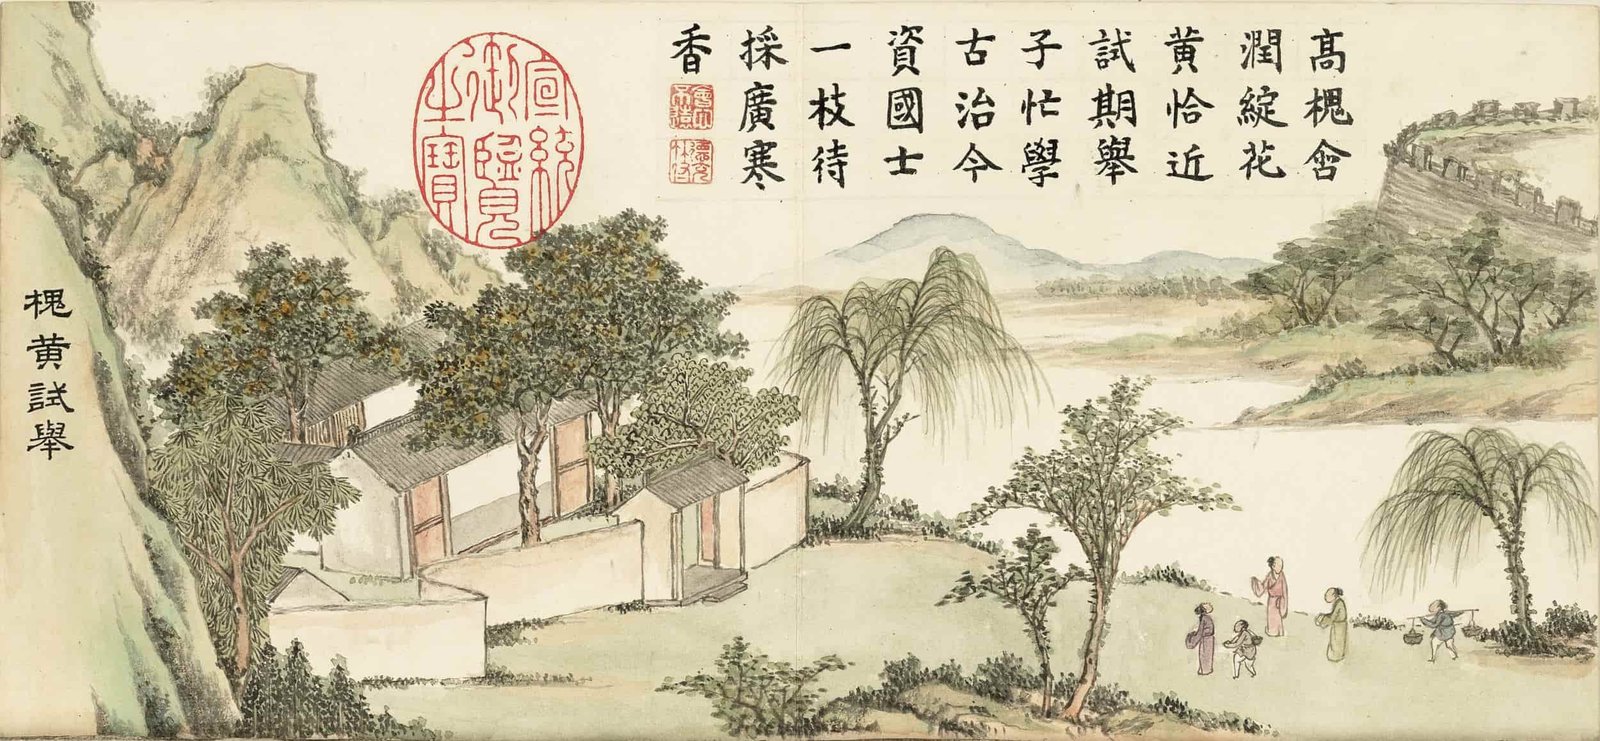 高槐含
潤綻花
黄恰近
試期舉
子忙學
古治今
資國士
一枝待
採廣寒
香
會心
不遠
德充
符
宣統
御覽
之寶
槐黄試舉